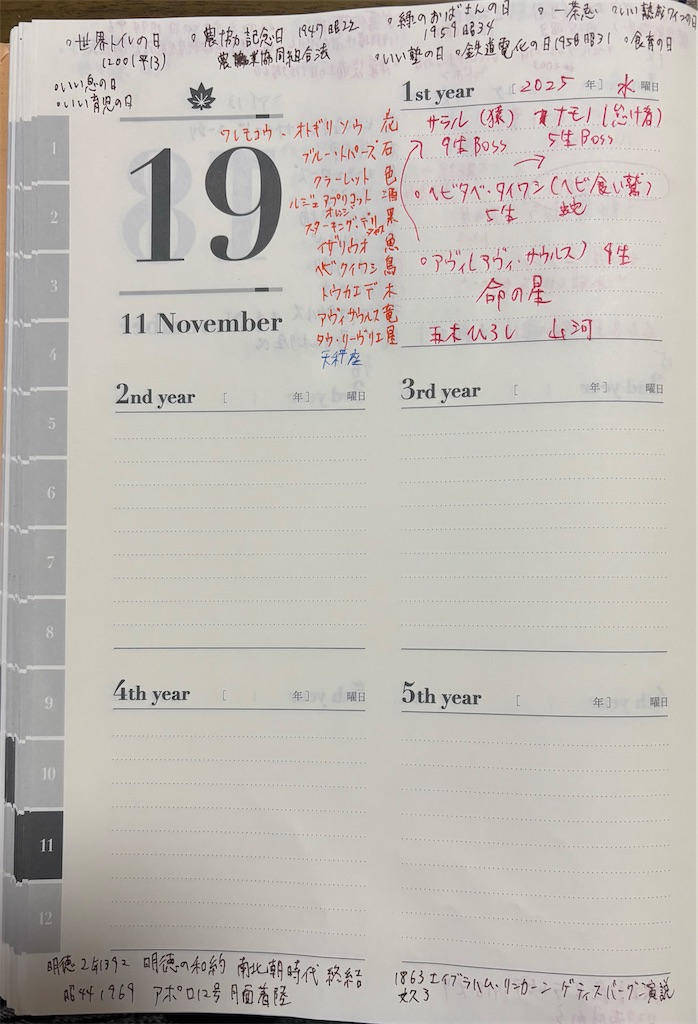 ・世界トイレの日
(2001平13)
・農協記念日 1947昭22
農業協同組合法
・緑のおばさんの日
1959昭34
・一茶忌
・いい熟成ワインの日
・いい塾の日
・鉄道電化の日1956昭31
・食育の日
・いい息の日
・いい育児の日
19
11 November
ワレモコウ・オトギリソウ 花
ブルー・トパーズ 石
クラーレット 色
ルジェ アプリコット 酒
オレンジ
スターキング・デリシャス 果
イザリウオ 魚
ヘビクイワシ 鳥
トウカエデ 木
アヴィサウルス 竜
タウ・リーヴリエ 星
天秤座
1st year [2025 年] 水 曜日
サラル(猿) ナモノ(怠け者)
9生Boss 5生Boss
・ヘビタベ・タイワシ(ヘビ食い鷲)
5生 蛇
・アヴィ(アヴィ・サウルス) 4生
命の星
五木ひろし 山河
2nd year [ 年] 曜日
3rd year [ 年] 曜日
4th year [ 年] 曜日
5th year [ 年] 曜日
1
2
3
4
5
6
7
8
9
10
11
12
明徳2年1392 明徳の和約 南北朝時代 終結
昭44 1969 アポロ12号 月面着陸
1863エイブラハム・リンカーン ゲティスバーグ演説
文久3